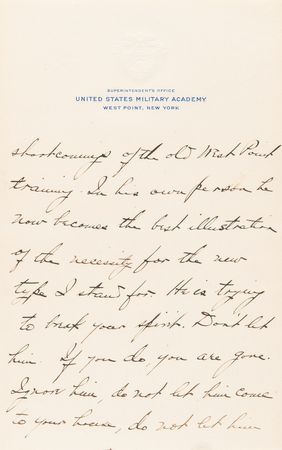 SUPERINTENDENT'S OFFICE
UNITED STATES MILITARY ACADEMY
WEST POINT, NEW YORK
shortcomings of the old West Point
training. In his own person he
now becomes the best illustration
of the necessity for the new
type I stand for. He is trying
to break your spirit. Don't let
him. If you do you are gone.
Ignore him, do not let him come
to your house, do not let him